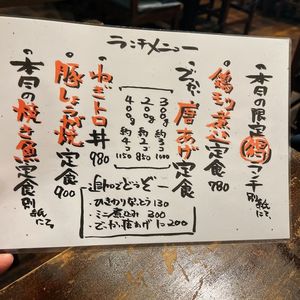 ランチメニュー
・本日の限定㊝ランチ別紙にて
・鶏モツ煮込定食 780
・でっかい唐あげ定食
300g 約3コ 1000
200g 約2コ 850
400g 約4コ 1150
・ねぎトロ丼 980
・豚しょうが焼定食 900
・本日の焼き魚定食別紙にて
追加でどうぞー
・ひきわりなっとう 130
・ミニ煮込み 300
・でっかい唐あげ 1コ 200